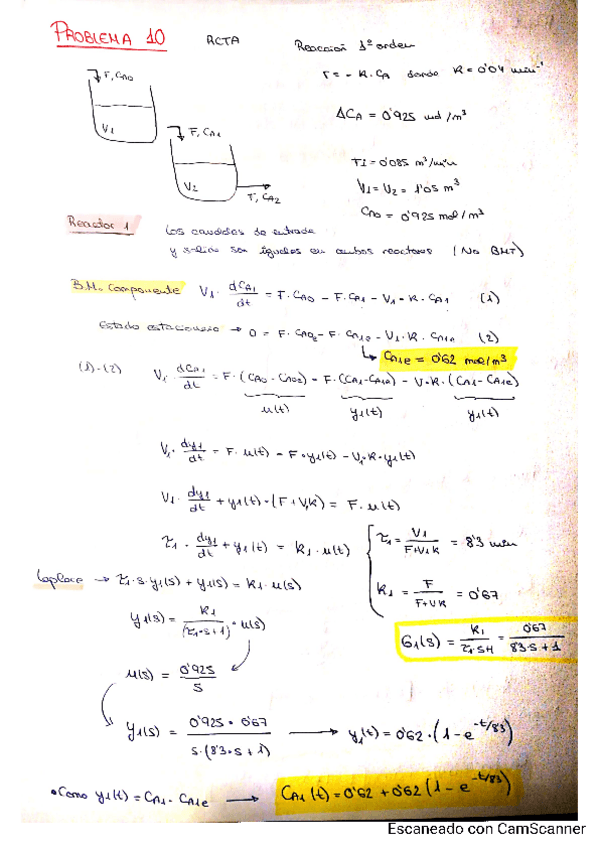 PROBLEMA 10 RCTA Reacción 1º orden
r = - K · CA donde K = 0'04 min⁻¹
F, CA0
ΔCA = 0'925 mol/m³
V1
F, CA1
F1 = 0'085 m³/min
V2
V1 = V2 = 1'05 m³
F, CA2
CA0 = 0'925 mol/m³
Reactor 1 Los caudales de entrada
y salida son iguales en ambos reactores (No BMT)
B.M. Componente V1 · dCA1/dt = F · CA0 - F · CA1 - V1 · K · CA1 (1)
Estado estacionario → 0 = F · CA0e - F · CA1e - V1 · K · CA1e (2)
↳ CA1e = 0'62 mol/m³
(1)-(2) V1 · dCA1/dt = F · (CA0 - CA0e) - F · (CA1 - CA1e) - V · K · (CA1 - CA1e)
u(t) y1(t) y1(t)
V1 · dy1/dt = F · u(t) - F · y1(t) - V1 · K · y1(t)
V1 · dy1/dt + y1(t) · (F + V1K) = F · u(t)
τ1 · dy1/dt + y1(t) = K1 · u(t)
τ1 = V1/(F+V1K) = 8'3 min
Laplace → τ1 · s · y1(s) + y1(s) = K1 · u(s)
K1 = F/(F+VK) = 0'67
y1(s) = K1/(τ1·s+1) · u(s)
G1(s) = K1/(τ1·s+1) = 0'67/(8'3·s+1)
u(s) = 0'925/s
y1(s) = 0'925 · 0'67/(s·(8'3·s+1)) → y1(t) = 0'62 · (1 - e^(-t/8'3))
• Como y1(t) = CA1 - CA1e → CA1(t) = 0'62 + 0'62 (1 - e^(-t/8'3))
Escaneado con CamScanner